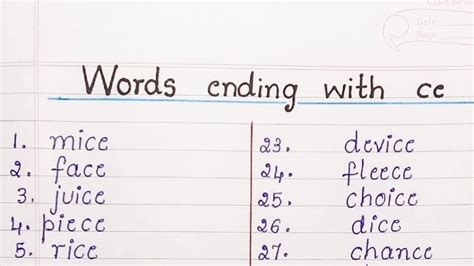 Date
Page
Words ending with ce
1. mice
2. face
3. juice
4. piece
5. rice
23. device
24. fleece
25. choice
26. dice
27. chance